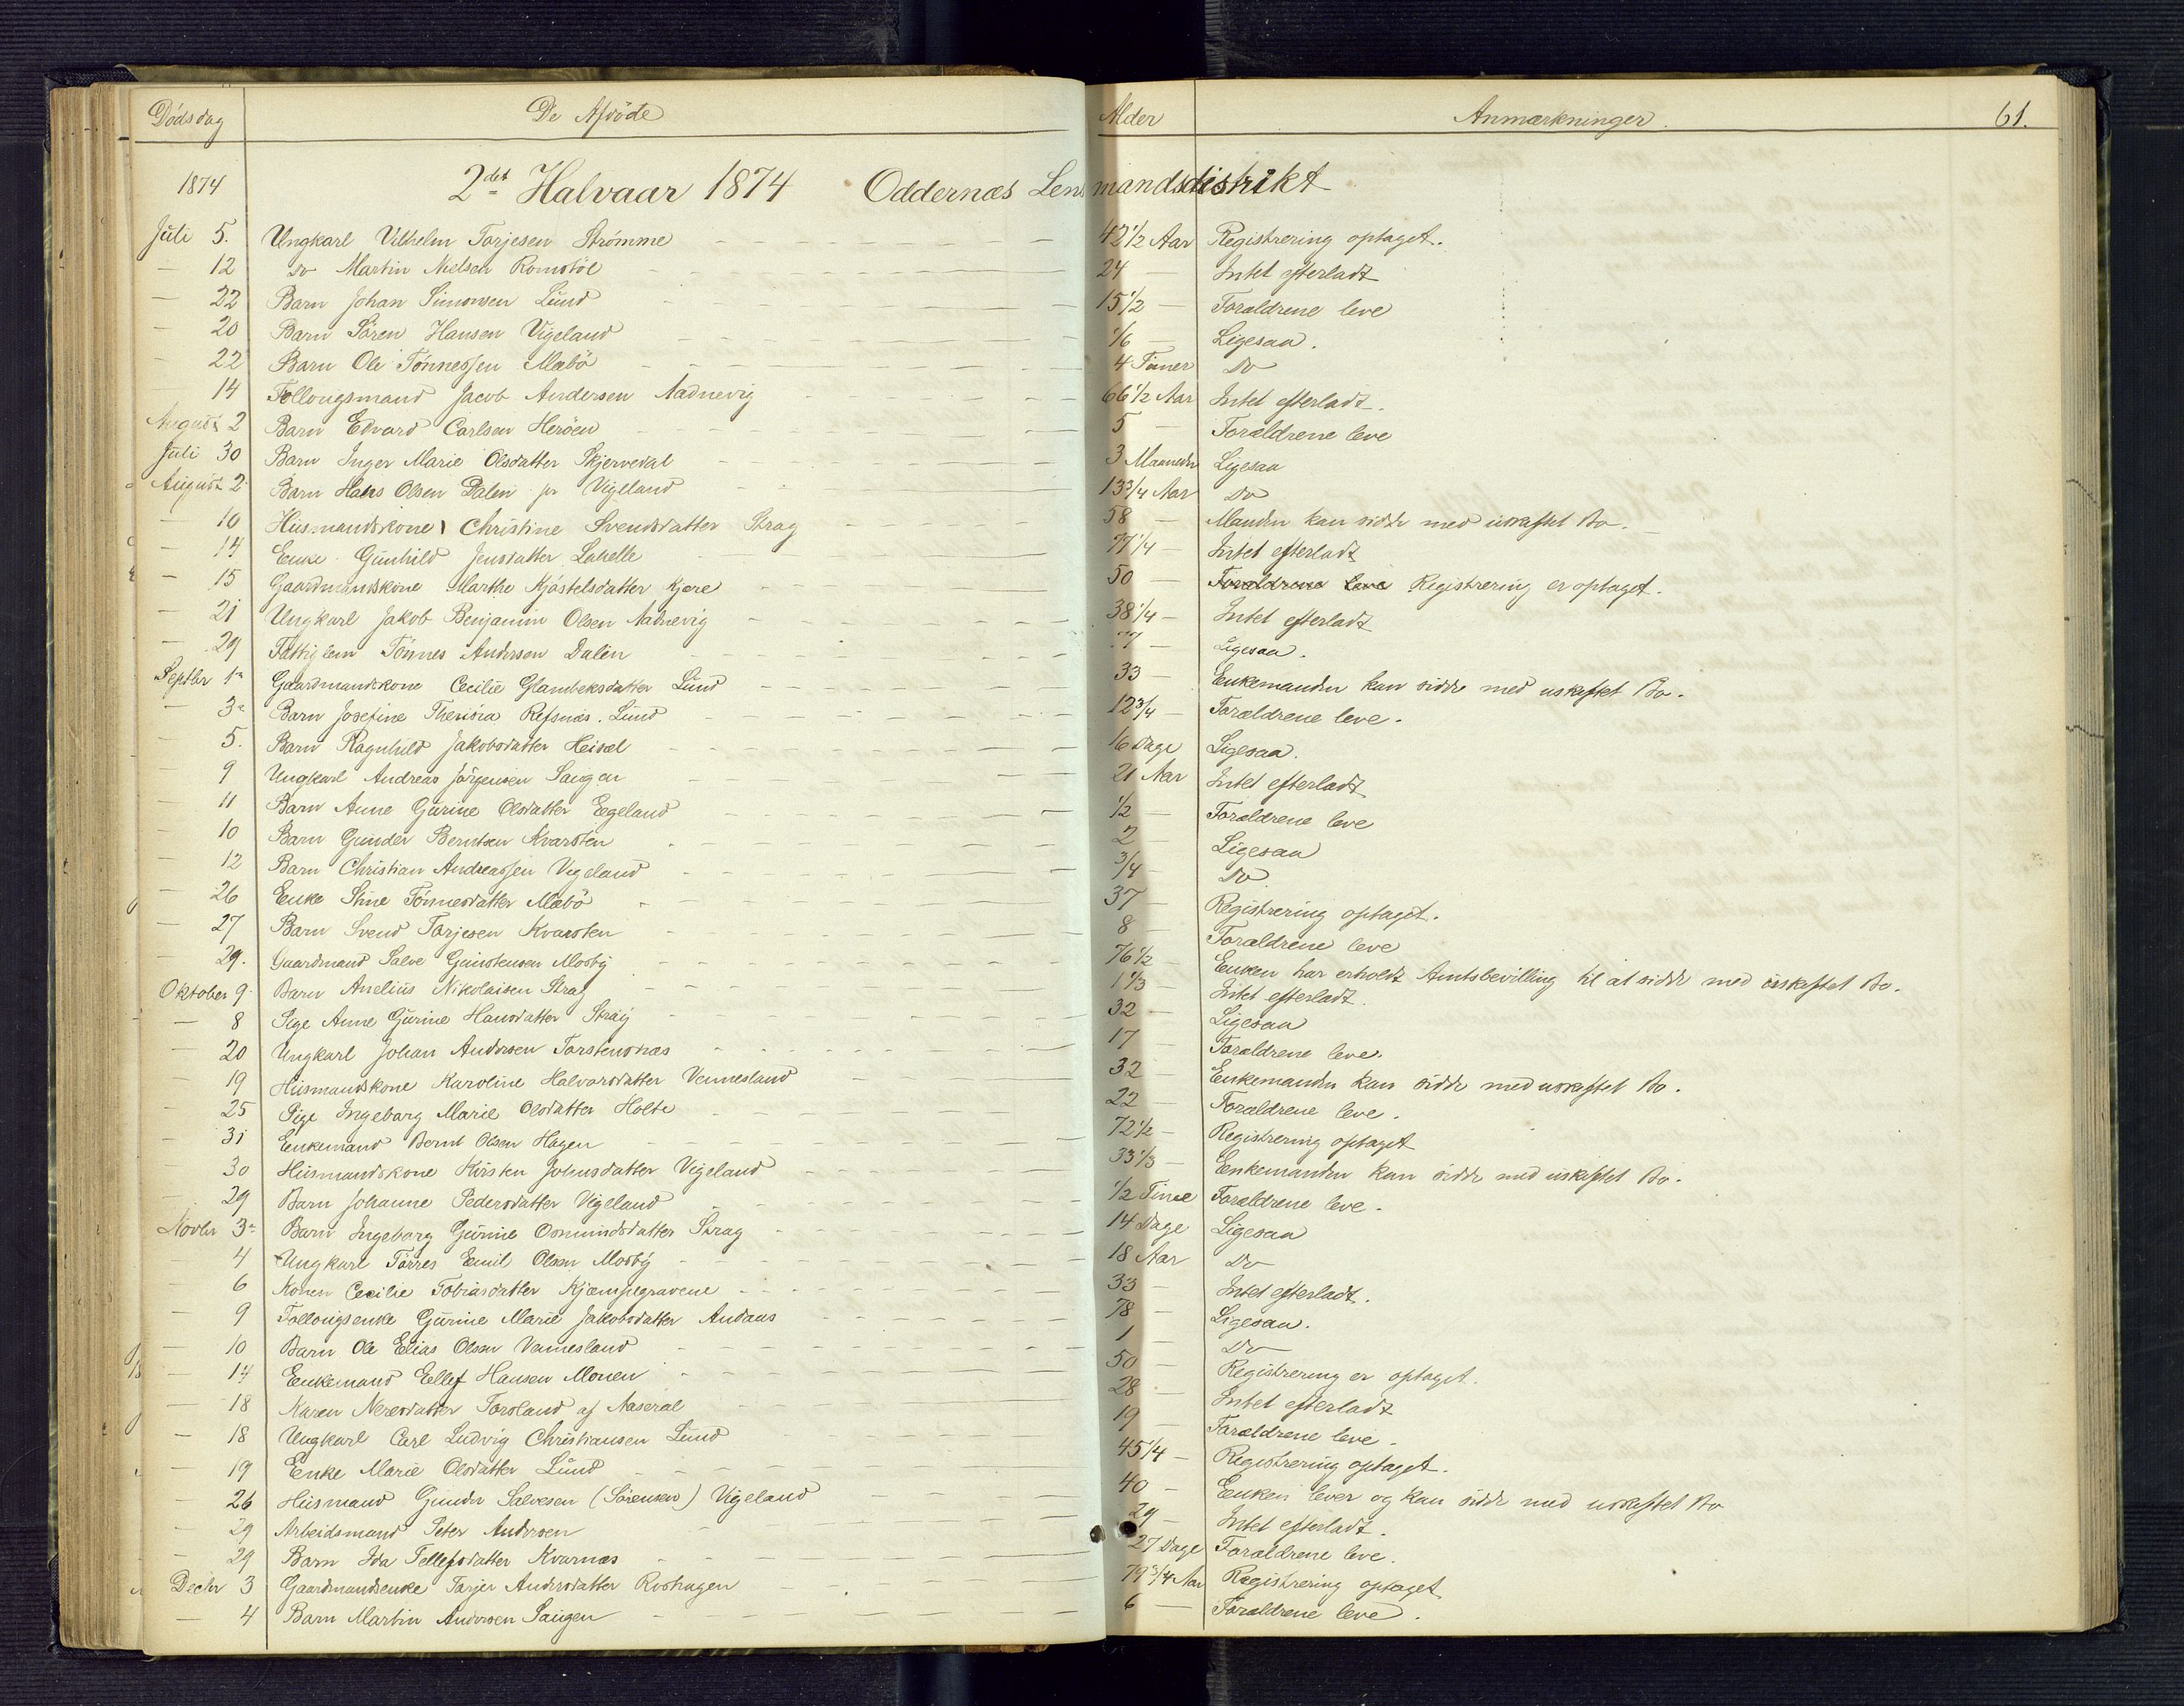 Dödsdag De Afdöde Alder Anmærkninger. 61.
1874 2det Halvaar 1874 Oddernæs Lensmandsdistrikt
Juli 5. Ungkarl Vilhelm Torjesen Strømme 42 1/2 Aar Registrering optaget.
— 12 do Martin Nielsen Romstöl 24 — Intet efterladt
— 22 Barn Johan Simonsen Lund 15 1/2 — Forældrene leve
— 20 Barn Sören Hansen Vigeland 1/6 — Ligesaa.
— 22 Barn Ole Tönnessen Mæbö 4 Timer Do
14 Follougsmand Jacob Andersen Aadnevig 66 1/2 Aar Intet efterladt.
August 2 Barn Edvard Carlsen Heröen 5 — Forældrene leve
Juli 30 Barn Inger Marie Olsdatter Skjervedal 3 Maaneder Ligesaa
August 2 Barn Hans Olsen Dalen pr Vigeland 13 3/4 Aar Do
— 10 Husmandskone Christine Svendsdatter Strag 58 — Manden kan sidde med uskiftet Bo.
— 14 Enke Gunhild Jensdatter Labelle 77 1/4 — Intet efterladt
— 15 Gaardmandskone Marthe Kjöstelsdatter Kjere 50 — Forældrene leve Registrering er optaget.
— 21 Ungkarl Jakob Benjamin Olsen Aadnevig 38 1/4 — Intet efterladt
— 29 Fattiglem Tönnes Andersen Dalen — Ligesaa.
Septbr 1ste Gaardmandskone Cecilie Glambeksdatter Lund 33 — Enkemanden kan sidde med uskiftet Bo.
— 3die Barn Josefine Theresia Refsnæs. Lund 12 3/4 — Forældrene leve.
5. Barn Ragnhild Jakobsdatter Heisel 16 Dage Ligesaa.
9 Ungkarl Andreas Jörgensen Saugen 21 Aar Intet efterladt
— 11 Barn Anne Gurine Olsdatter Eegeland 1/2 — Forældrene leve
— 10 Barn Gunder Berntsen Kvarsten 2 — Ligesaa
— 12 Barn Christian Andreassen Vegeland 3/4 — Do
— 26 Enke Stine Tönnesdatter Mæbö 37 — Registrering optaget.
— 27 Barn Svend Torjesen Kvarsten 8 — Forældrene leve
— 29. Gaardmand Salve Gunstensen Mosby 76 1/2 — Enken har erholdt Amtsbevilling til at sidde med uskiftet Bo.
Oktober 9 Barn Anelius Nikolaisen Strag 1 1/3 — Intet efterladt.
— 8 Pige Anne Gurine Hansdatter Straÿ 32 — Ligesaa
— 20 Ungkarl Johan Andersen Torstensnæs 17 — Forældrene leve.
— 19 Husmandskone Karoline Halvorsdatter Vennesland 32 — Enkemanden kan sidde med uskiftet Bo.
— 25 Pige Ingeborg Marie Olsdatter Holte 22 — Forældrene leve.
— 31 Enkemand Bernt Olsen Hagen 72 1/2 — Registrering optaget
— 30 Husmandskone Kirsten Johnsdatter Vigeland 33 1/3 — Enkemanden kan sidde med uskiftet Bo.
29 Barn Johanne Pedersdatter Vigeland 1/2 Time Forældrene leve.
Novbr 3die Barn Ingeborg Gurine Osmundsdatter Strag 14 Dage Ligesaa
4 Ungkarl Törres Emil Olsen Mosbÿ 18 Aar Do
6 Konen Cecilie Tobiasdatter Kjæmpegravene 33 — Intet efterladt.
— 9 Follougsenke Gurine Marie Jakobsdatter Andaus 78 — Ligesaa.
— 10 Barn Ole Elias Olsen Vennesland 1 — Do
— 14 Enkemand Eellef Hansen Monen 50 — Registrering er optaget.
— 18 Karen Neresdatter Forsland af Aaseral 28 — Intet efterladt
— 18 Ungkarl Carl Ludvig Christiansen Lund 19 — Forældrene leve.
— 19 Enke Marie Olsdatter Lund 45 1/4 — Registrering optaget.
— 26 Husmand Gunder Salvesen (Sörensen) Vigeland 40 — Enken lever og kan sidde med uskiftet Bo
— 29 Arbeidsmand Peter Andersen 29 — Intet efterladt.
— 29 Barn Ida Tellefsdatter Kvarnes 27 Dage Forældrene leve.
Decbr 3 Gaardmandsenke Torjer Andersdatter Roshagen 79 3/4 Aar Registrering optaget
— 4 Barn Martin Andersen Saugen 6 — Forældrene leve.